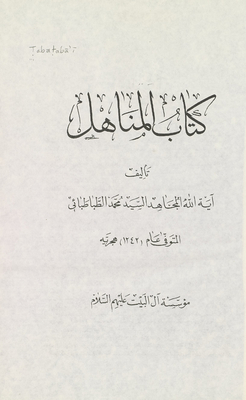 Tabataba'i
كتاب المناهل
تأليف
آية الله المجاهد السيد محمد الطباطبائي
المتوفى عام (١٢٤٢) هجرية
مؤسسة آل البيت عليهم السلام